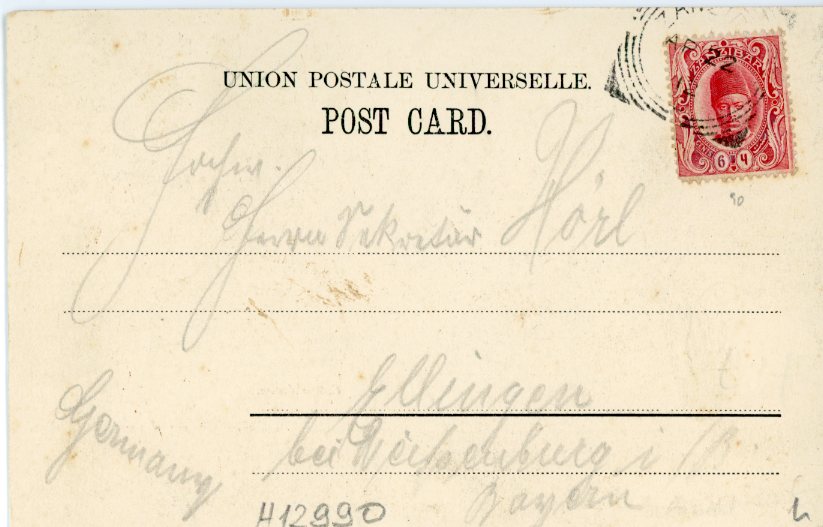 UNION POSTALE UNIVERSELLE.
POST CARD.
ZANZIBAR
6 4
90
Hochw.
Herrn Sekretär Hörl
Ellingen
bei Weißenburg i/B
Bayern
Germany
H12990